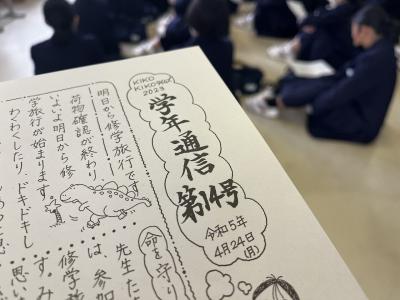 KIKO
KIKOタイムズ
2023
学年通信
第14号
令和5年
4月24日(月)
明日から修学旅行です
荷物確認が終わり
いよいよ明日から修
学旅行が始まります。
わくわくしたり、ドキドキし
命を守り
先生た
は、参加
修学旅
すみ
思い